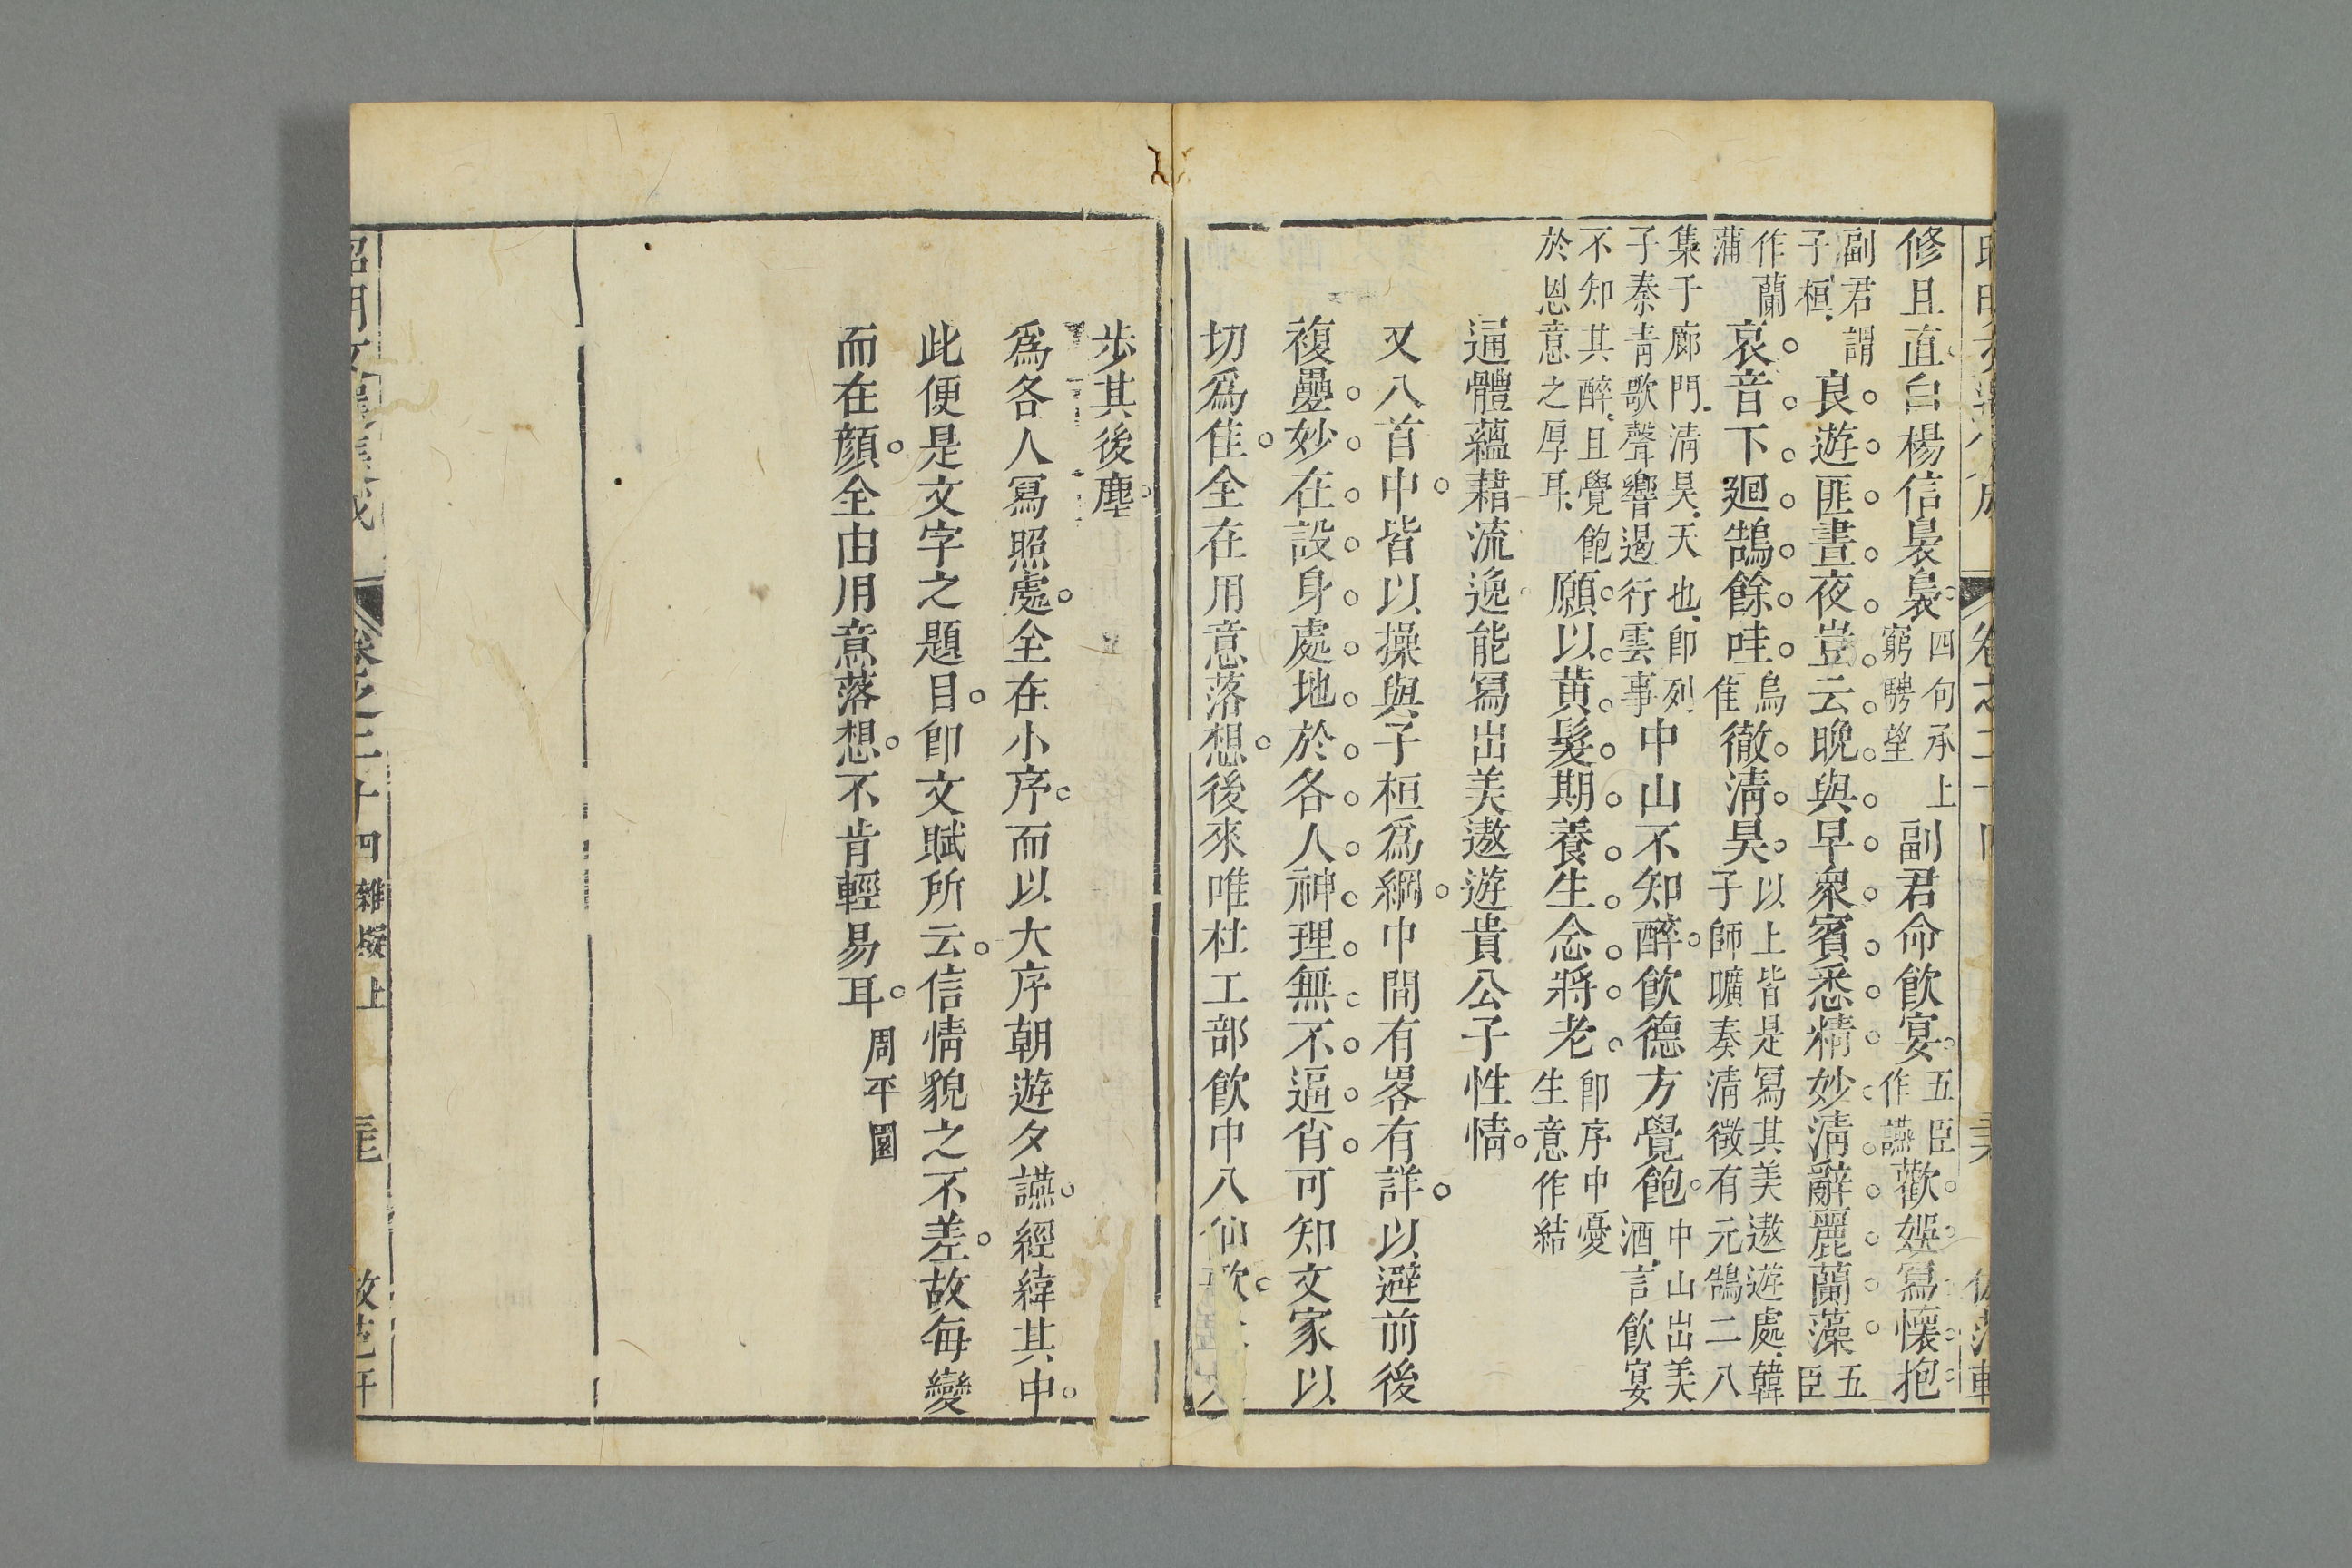 修且直白楊信裊裊四句承上窮騁望副君命飲宴五臣作讌歡娛寫懷抱
副君謂子桓良遊匪晝夜豈云晚與早衆賓悉精妙清辭麗蘭藻五臣
作蘭蒲哀音下廻鵠餘哇烏佳徹清昊以上皆是寫其美遨遊處韓子師曠奏清徵有元鵠二八
集于廊門清昊天也卽列子秦青歌聲響遏行雲事中山不知醉飲德方覺飽中山出美酒言飲宴
不知其醉且覺飽於恩意之厚耳願以黃髮期養生念將老卽序中憂生意作結
通體蘊藉流逸能寫出美遨遊貴公子性情
又八首中皆以操與子桓爲綱中間有畧有詳以避前後
複疊妙在設身處地於各人神理無不逼肖可知文家以
切爲佳全在用意落想後來唯杜工部飲中八仙歌
步其後塵
爲各人寫照處全在小序而以大序朝遊夕讌經緯其中
此便是文字之題目卽文賦所云信情貌之不差故每變
而在顏全由用意落想不肯輕易耳周平園
卷之二十四 雜擬上